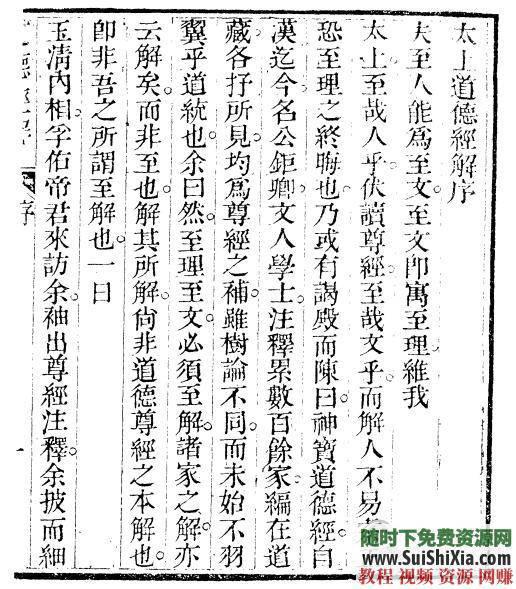 太上道德經解序
夫至人能爲至文至文卽寓至理維我
太上至哉人乎伏讀尊經至哉文乎而解人不易
恐至理之終晦也乃或有謁殿而陳曰神寶道德經自
漢迄今名公鉅卿文人學士注釋累數百餘家編在道
藏各抒所見均爲尊經之補雖樹論不同而未始不羽
翼乎道統也余曰然至理至文必須至解諸家之解亦
云解矣而非至也解其所解尙非道德尊經之本解也
卽非吾之所謂至解也一日
玉淸內相孚佑帝君來訪余袖出尊經注釋余披而細
序
一
随时下免费资源网
www.SuiShiXia.com
教程 视频 资源 网赚